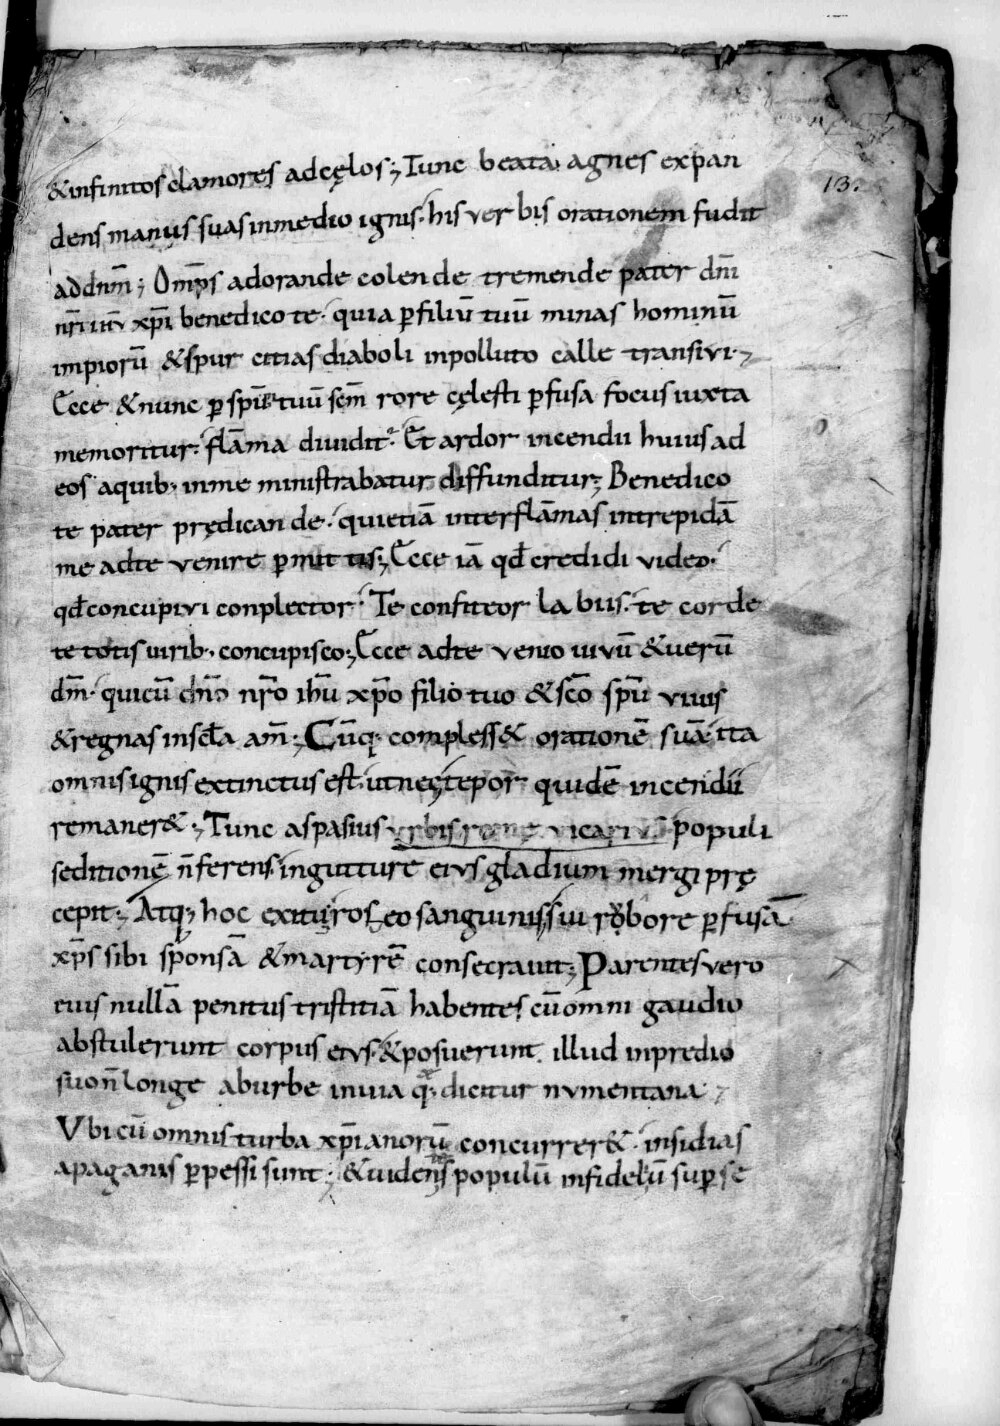 &infinitos clamores ad cęlos; Tunc beata agnes expan
13.
dens manus suas in medio ignis. his verbis orationem fudit
ad dnm̄; Omp̄s adorande colende tremende pater dnī
nr̄i ihū xp̄i benedico te. quia p filiū tuū minas hominū
impiorū & spurcitias diaboli inpolluto calle transivi;
Ęcce & nunc p spm̄ tuū scm̄ rore cęlesti pfusa focus iuxta
me moritur. flāma dividit. Et ardor incendii huius ad
eos a quib; in me ministrabatur diffunditur; Benedico
te pater prędicande. qui etiā inter flāmas intrepidā
me ad te venire pmittis; Ęcce iā qđ credidi video.
qđ concupivi conplector. Te confiteor labiis. te corde
te totis virib; concupisco; Ęcce ad te venio vivū & verū
dm̄. qui cū dn̄o nr̄o ihū xp̄o filio tuo & scō spū vivis
& regnas in scl̄a am̄; Cūq; compless& orationē suā. ita
omnis ignis extinctus est. ut nec tepor quidē incendii
remaner&; Tunc aspasius urbis romę vicarius populi
seditionē n̄ ferens. in gutture eius gladium mergi prę
cepit; Atq; hoc exitu roseo sanguinis sui robore pfusā
xp̄s sibi sponsā & martyrē consecravit; Parentes vero
eius nullā penitus tristitiā habentes. cū omni gaudio
abstulerunt corpus eius. & posuerunt illud in predio
suo n̄ longe ab urbe in via q; dicitur numentana;
Ubi cū omnis turba xp̄ianorū concurrer&. insidias
a paganis ppessi sunt; & videns populū infideliū sup se